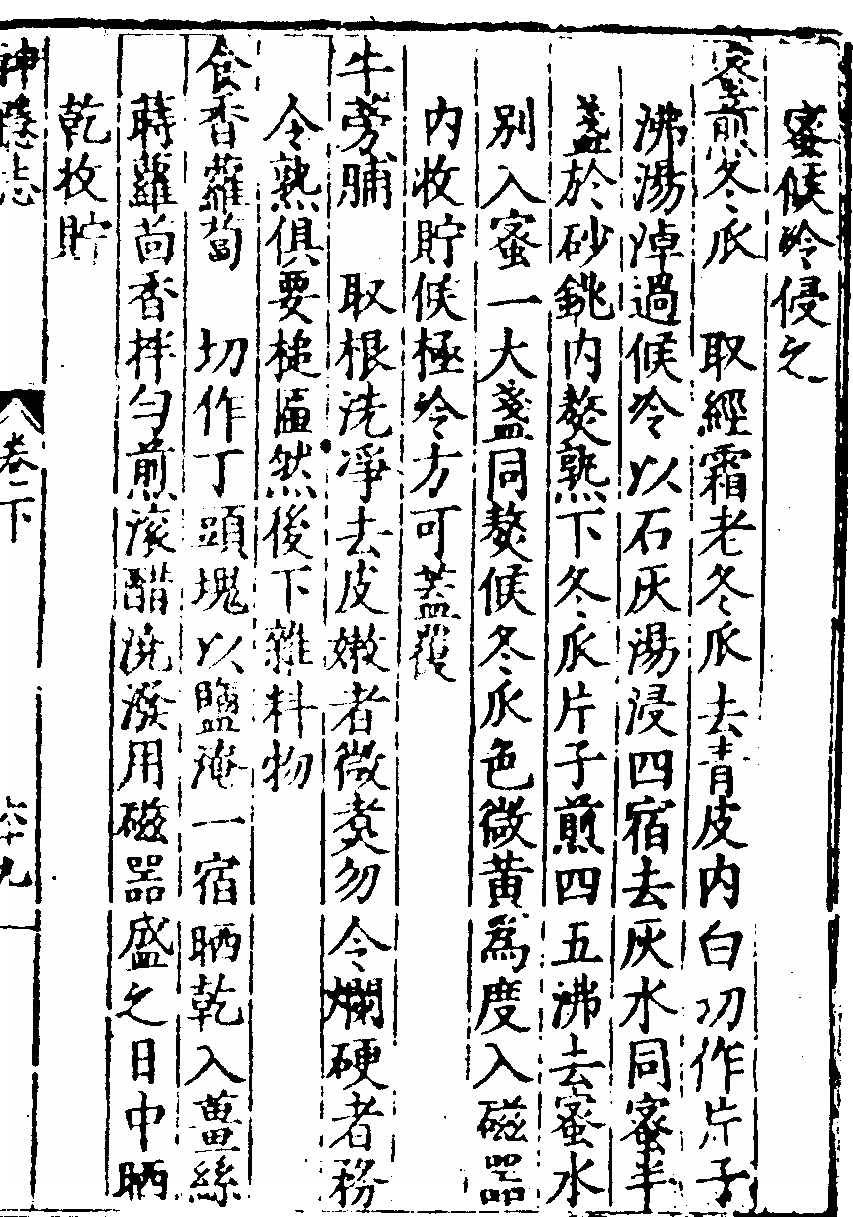 蜜候冷侵之
蜜煎冬瓜　取經霜老冬瓜去青皮内白切作片子
沸湯焯過候冷以石灰湯浸四宿去灰水同蜜半
盞於砂銚内熬熟下冬瓜片子煎四五沸去蜜水
别入蜜一大盞同熬候冬瓜色微黄爲度入磁器
内收貯候極冷方可蓋覆
牛蒡脯　取根洗凈去皮嫩者微煑勿令爛硬者務
令熟俱要槌匾然後下雜料物
食香蘿蔔　切作丁頭塊以鹽淹一宿晒乾入薑絲
蒔蘿茴香拌勻煎滚醋澆潑用磁器盛之日中晒
乾收貯
神隱志　卷下　六十九